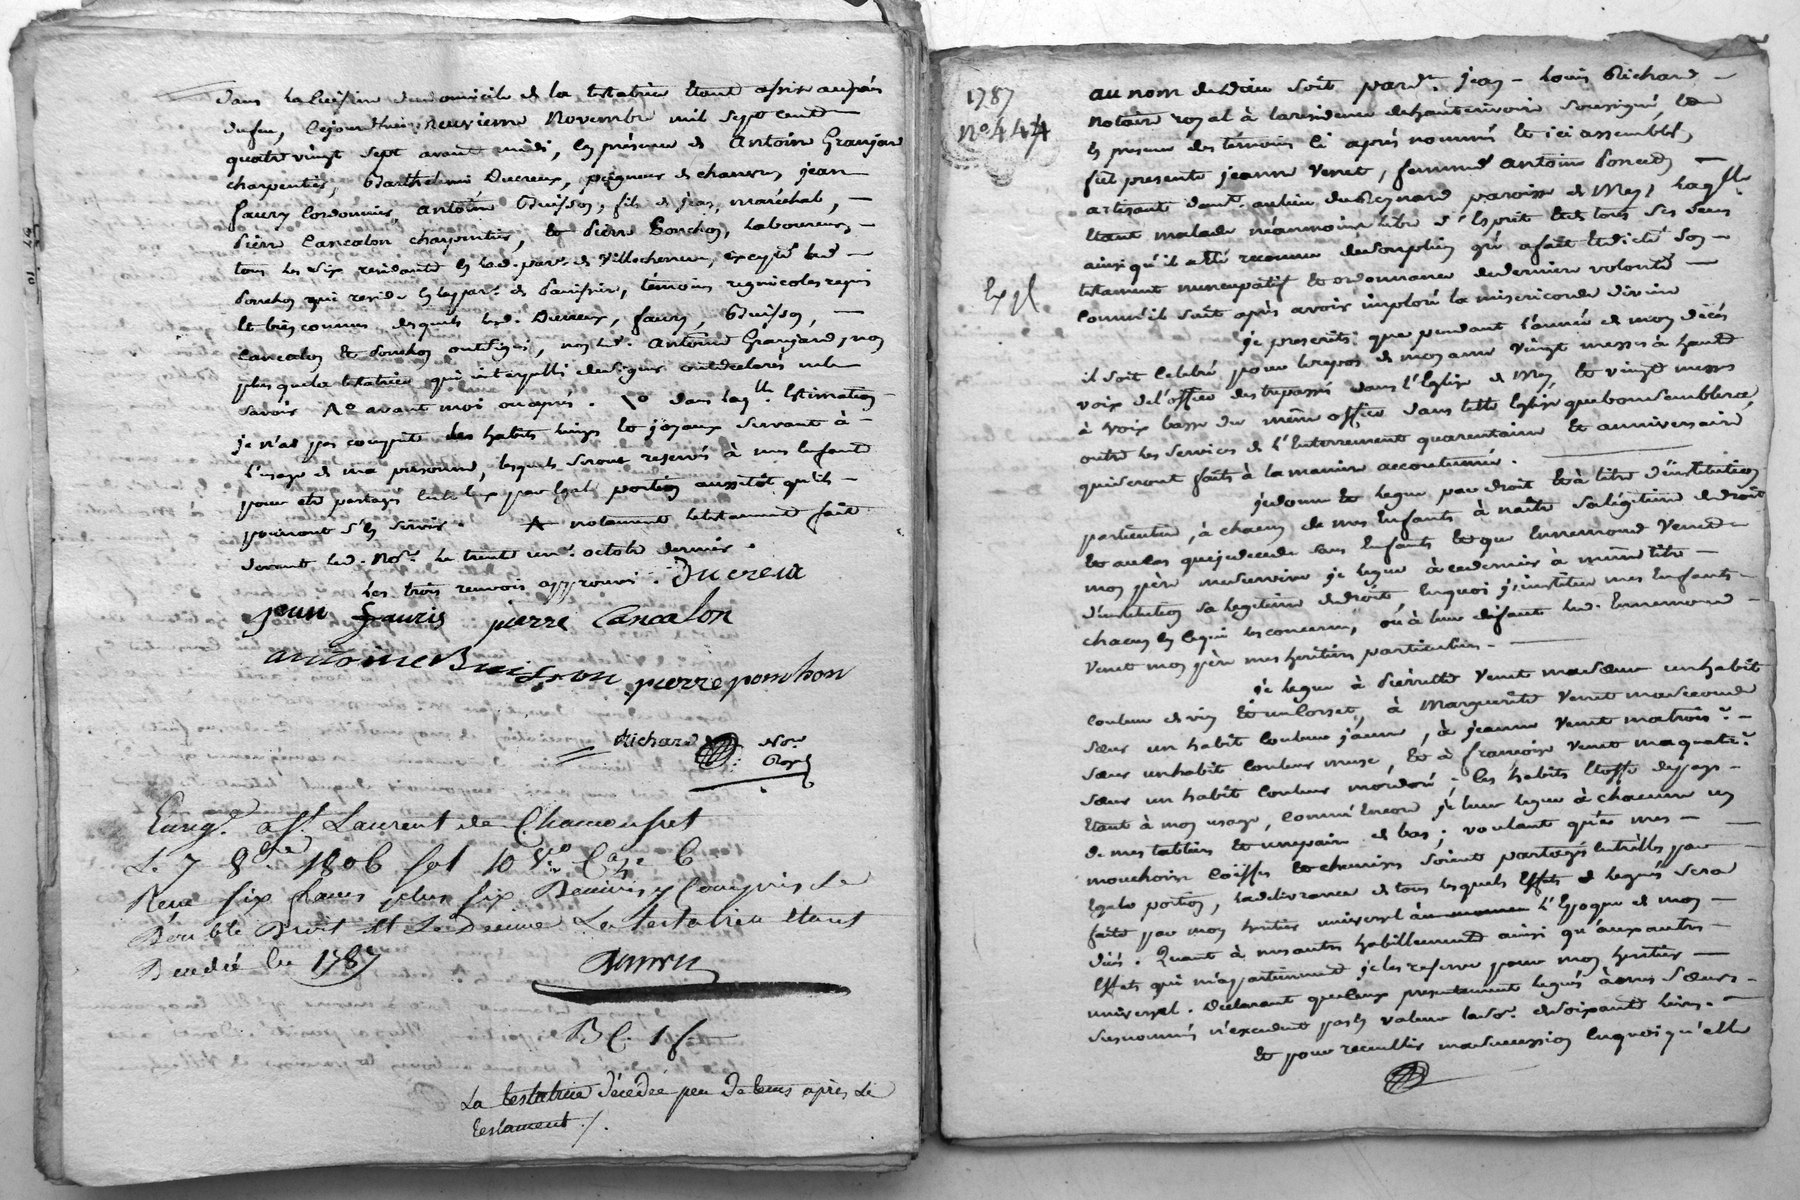 dans la cuisine du domicile de la testatrice étant assise auprés
du feu, cejourd'huy neuvieme Novembre mil sept cent
quatre vingt sept avant midi, en présence de Antoine Granjard
charpentier, Barthelemi Ducreux, peigneur de chanvre, jean
faury Cordonnier, antoine Buisson, fils de jean, maréchal,
pierre Cancalon charpentier, et pierre Ponchon, laboureur,
tous les six residants en lad. par. de Villechenève, excepté led.
Ponchon qui reside en la par. de Panissiere, témoins regnicoles requis
et bien connus desquels led. Ducreux, faury, Buisson,
Cancalon et Ponchon ont signé, non led. Antoine Granjard, non
plus que la testatrice qui interpellés de signer ont déclarés ne le
savoir avant moi ou après. dans laqlle Estimation
je n'ai pas compté les habits linges et joyaux servant à
l'usage de ma personne, lesquels seront reservés à mes Enfants
pour etre partagés entre Eux par Egale portion aussitôt qu'ils
pourront s'en servir. notament le testament fait
devant led. Nore le trente un octobre dernier.
Les trois renvois approuvés. Ducreux
jean fauris pierre Cancalon
antoine Buisson pierre ponchon
Richard Nore
Royal
Enregé. a St. Laurent de Chamousset
Le 7 8bre 1806 fol 10 Vo Case 6
Reçu six francs plus six Decimes y Compris le
Double Droit et le Decime La testatrice étant
Decedée en 1787
BC. 1f
La testatrice décédée peu de tems après Le
testament ./.
1787
No 444
Expl
au nom de dieu soit pardt. jean-Louis Richard
Notaire royal à la residence de hauterivoire soussigné et
en presence des témoins ci après nommés et ici assemblés,
fut presente jeanne Venet, femme d'Antoine Poncet
artisant demt. au lieu du Reynard paroisse de Meys, laqlle
étant malade néanmoins libre d'Esprit et de tous ses sens
ainsi qu'il a été reconnu de son plein gré a fait et dicté son
testament nuncupatif et ordonnance de derniere volonté
Comme il suit après avoir imploré la misericorde divine
je prescrits que pendant l'année de mon décés
il soit Celebré pour le repos de mon ame vingt messes à haute
voix de l'office des trepassés dans l'Eglise de Meys, et vingt messes
à voix basse du même office dans telle Eglise que bon semblera,
outre les services de l'Enterrement quarentaine et anniversaire
qui seront faits à la maniere accoutumée.
je donne et legue par droit et à titre d'institution
particuliere, à chacun de mes Enfants à naitre sa légitime de droit
et au cas que je decede sans Enfants et que Ennemond Venet
mon père me survive je legue à ce dernier à même titre
d'institution sa legitime de droit, En quoi j'institue mes Enfants
chacun en ce qui les concerne, où à leur défaut led. Ennemond
Venet mon père mes heritiers particuliers.
je legue à Pierrette Venet ma sœur un habit
couleur de vin et un Corset, à Marguerite Venet ma seconde
sœur un habit Couleur jaune, à jeanne Venet ma troise.
sœur un habit couleur muse, et à françoise Venet ma quate.
sœur un habit couleur mordoré; ces habits Etoffe de pays
étant à mon usage, Comme Encore je leur legue à chacune un
de mes tabliers et une paire de bas; voulant qu'às mes
mouchoirs Coiffes et chemises soient partagés entr'elles par
Egale portion, la delivrance de tous lesquels Effets de legués sera
faite par mon heritier universel à l'Epoque de mon
décés. Quant à mes autres habillements ainsi qu'aux autres
Effets qui m'appartiennent je les reserve pour mon heritier
universel. Declarant que ceux presentement legués à mes sœurs
susnommés n'excedent pas en valeur la so. de soixante livres.
Et pour recueillir ma succession En quoi qu'elle